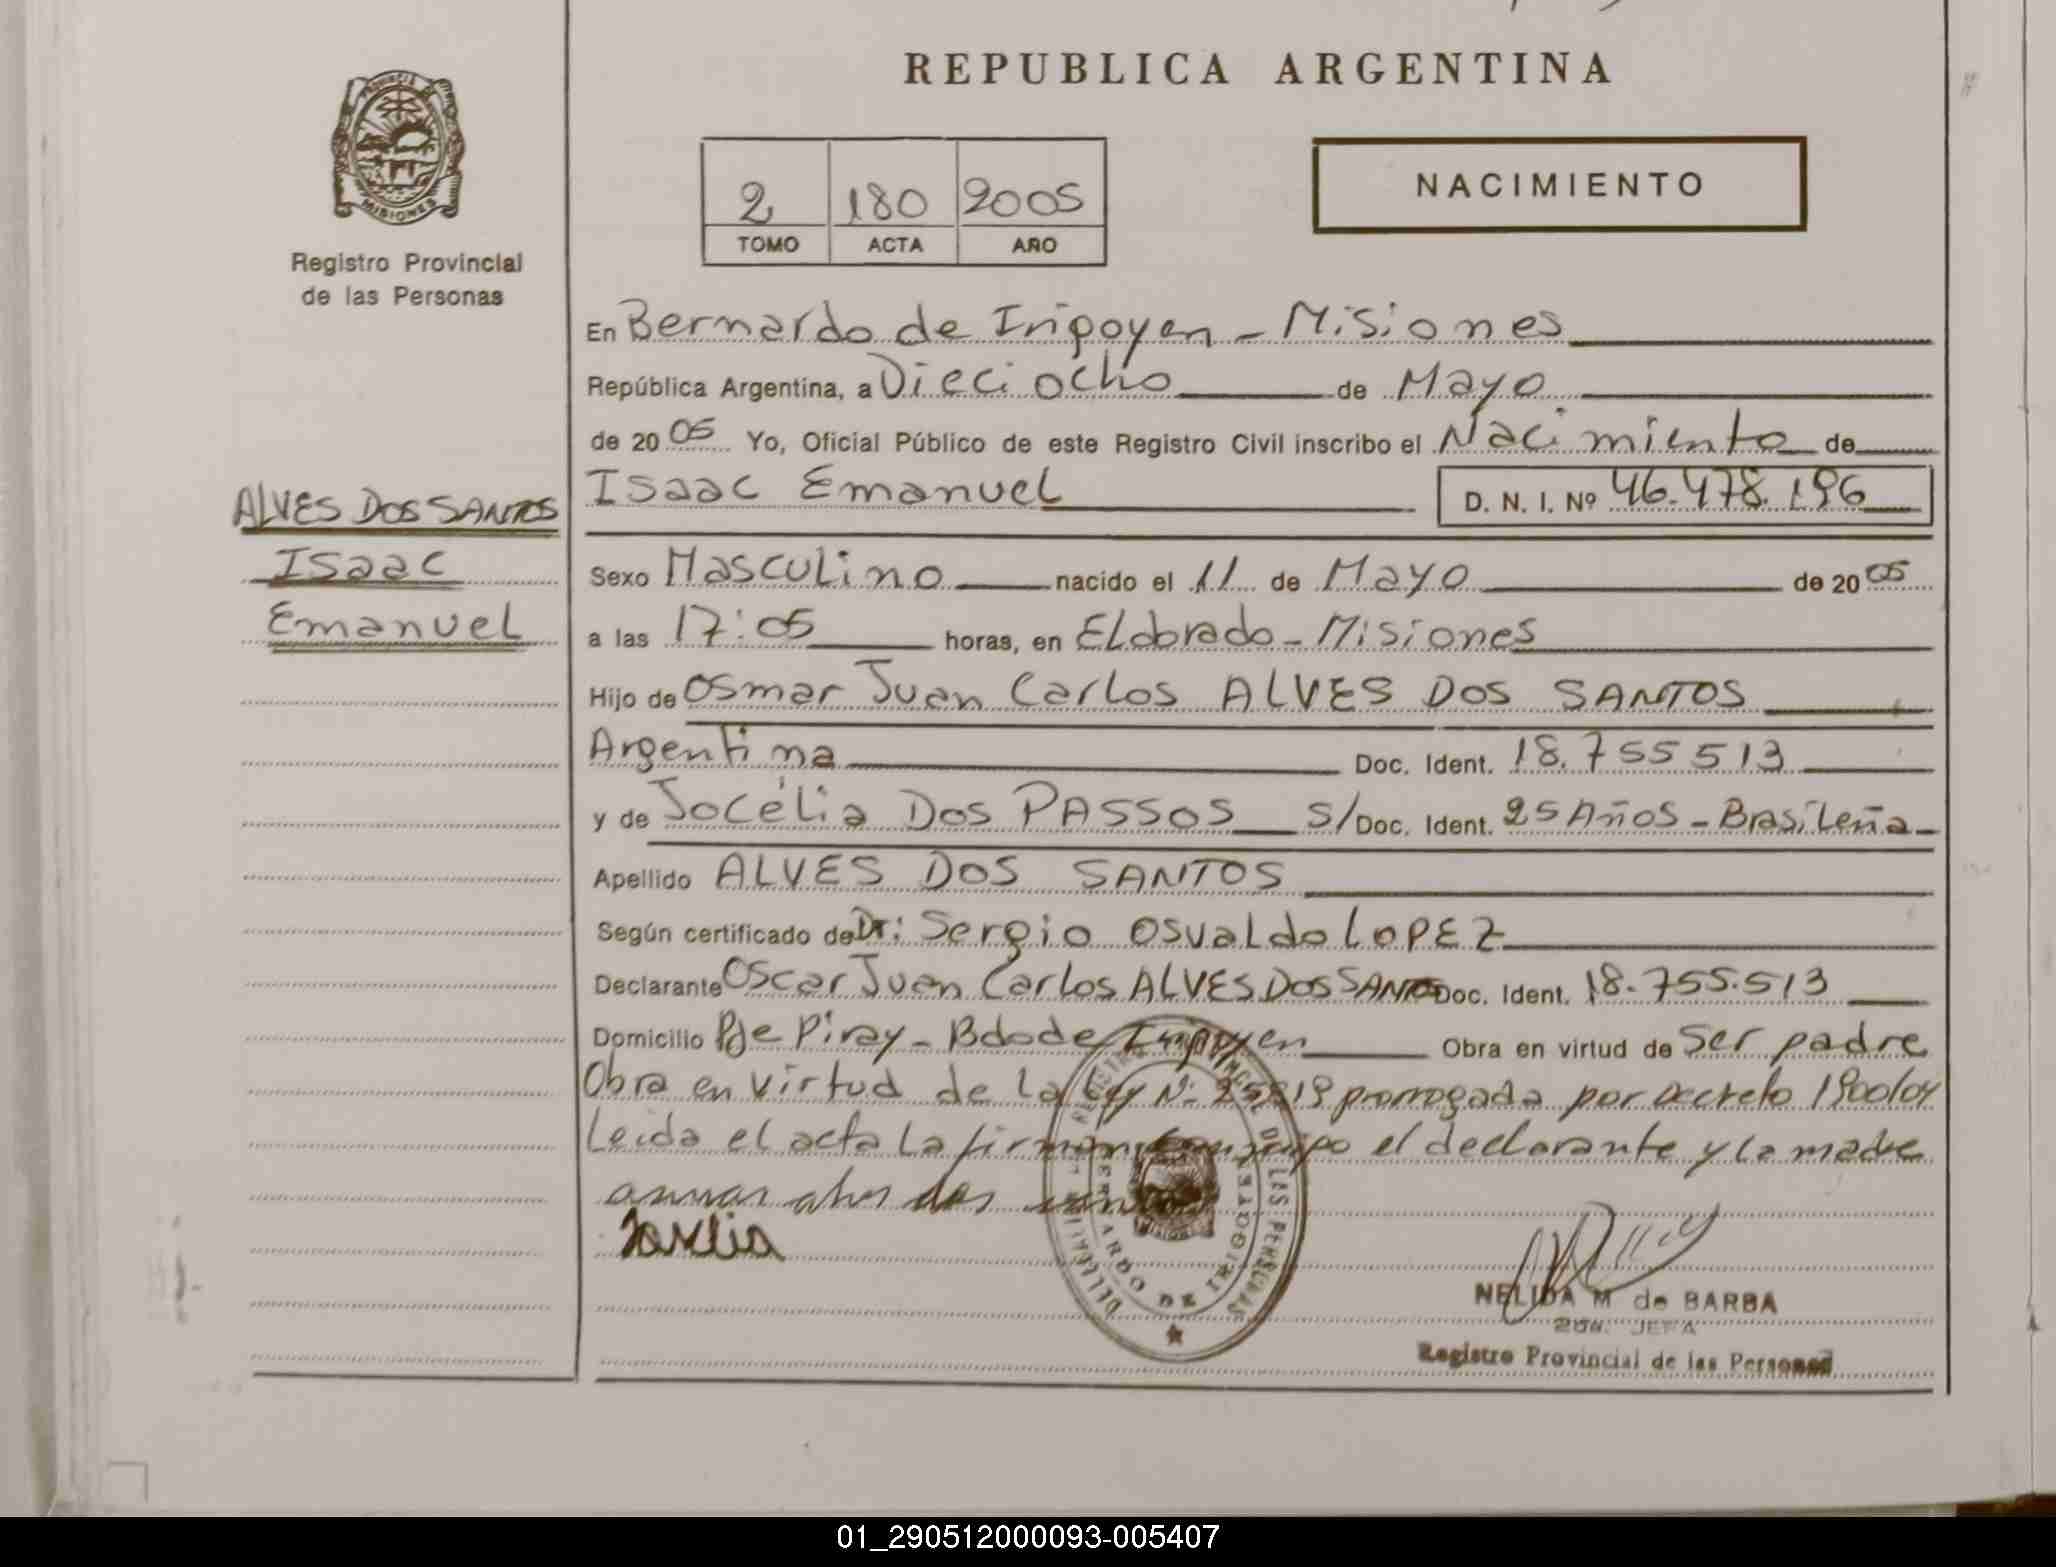 REPUBLICA ARGENTINA
PROVINCIA DE
MISIONES
Registro Provincial
de las Personas
2 180 2005
TOMO ACTA AÑO
NACIMIENTO
En Bernardo de Iripoyen - Misiones
República Argentina, a Dieciocho de Mayo
de 2005 Yo, Oficial Público de este Registro Civil inscribo el Nacimiento de
Isaac Emanuel D. N. I. Nº 46.478.196
ALVES DOS SANTOS
Isaac
Emanuel
Sexo Masculino nacido el 11 de Mayo de 2005
a las 17:05 horas, en Eldorado - Misiones
Hijo de Osmar Juan Carlos ALVES DOS SANTOS
Argentina Doc. Ident. 18.755513
y de Jocélia DOS PASSOS S/Doc. Ident. 25 Años - Brasileña
Apellido ALVES DOS SANTOS
Según certificado de Dr: Sergio Osvaldo LOPEZ
Declarante Oscar Juan Carlos ALVES DOS SANTOS Doc. Ident. 18.755.513
Domicilio Pje Piray - Bdo de Iripoyen Obra en virtud de Ser padre
Obra en virtud de la Ley Nº 25819 prorrogada por Decreto 1900/04
Leida el acta la firman conmigo el declarante y la madre
DELEGACION REGISTRO PROVINCIAL DE LAS PERSONAS
BERNARDO DE IRIGOYEN
NELIDA M de BARBA
JEFA
Registro Provincial de las Personas
01_290512000093-005407